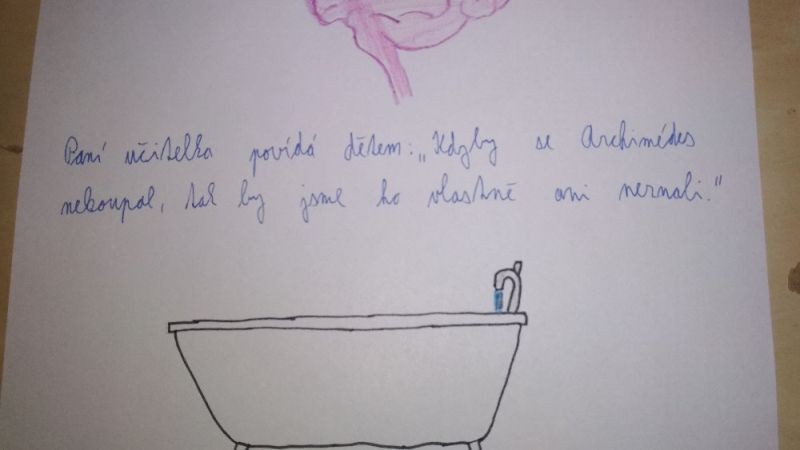 Paní učitelka povídá dětem: „Kdyby se Archimédes
nekoupal, tak by jsme ho vlastně ani neznali."